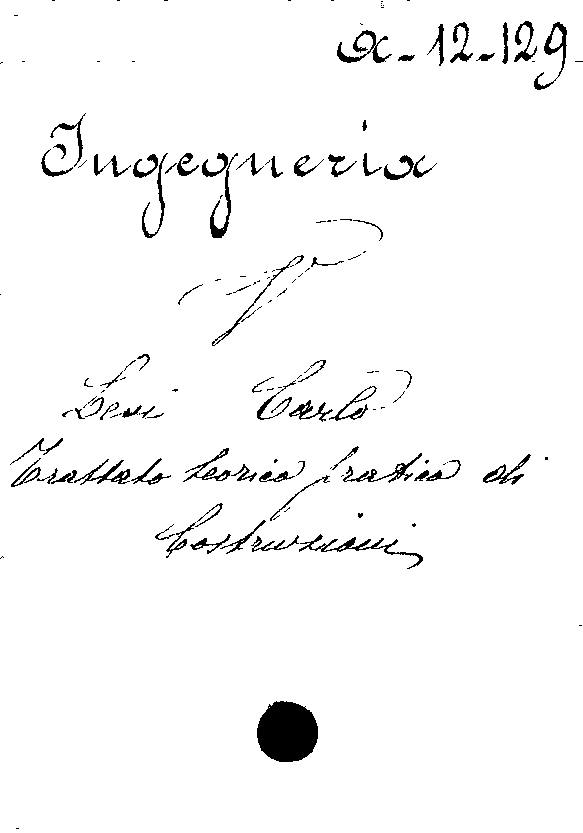 α-12-129
Ingegneria
V
Levi Carlo
Trattato teorico pratico di
Costruzioni